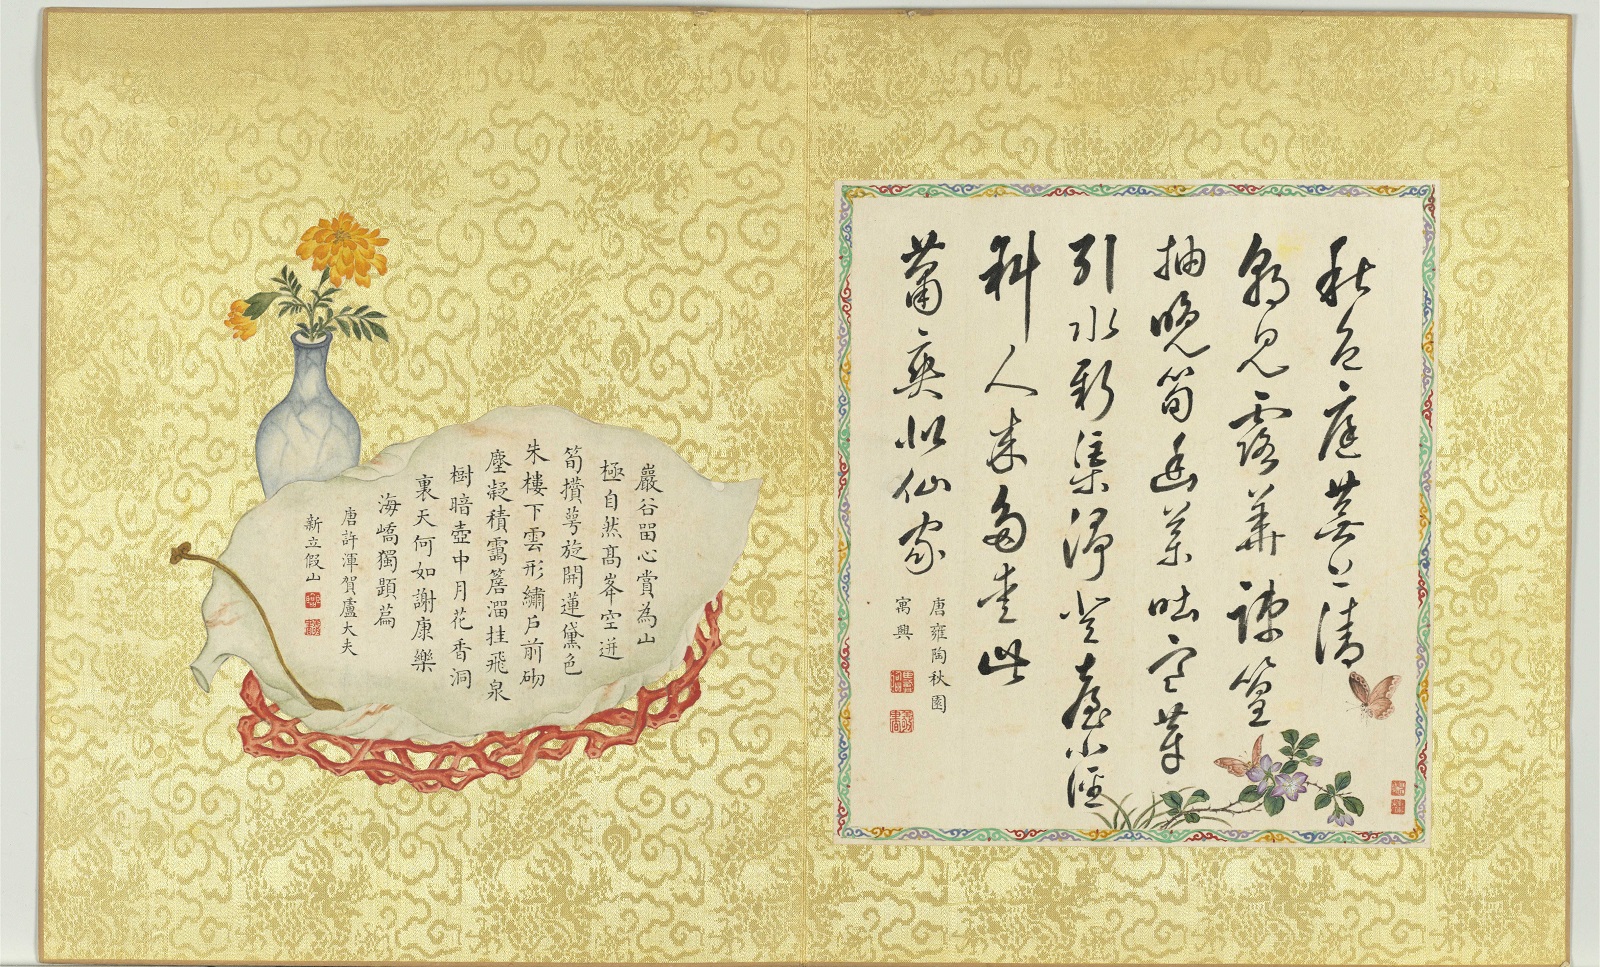 秋色庭蕪上清
朝見露華疎篁
抽晚筍幽藥吐寒芽
引水新渠淨登臺小徑
斜人來多愛此
蕭爽似仙家
唐雍陶秋園
寓興
巖谷畱心賞為山
極自然髙峯空迸
筍攢萼旋開蓮黛色
朱樓下雲形繡戶前砌
塵凝積靄簷溜挂飛泉
樹暗壺中月花香洞
裏天何如謝康樂
海嶠獨題篇
唐許渾賀盧大夫
新立假山